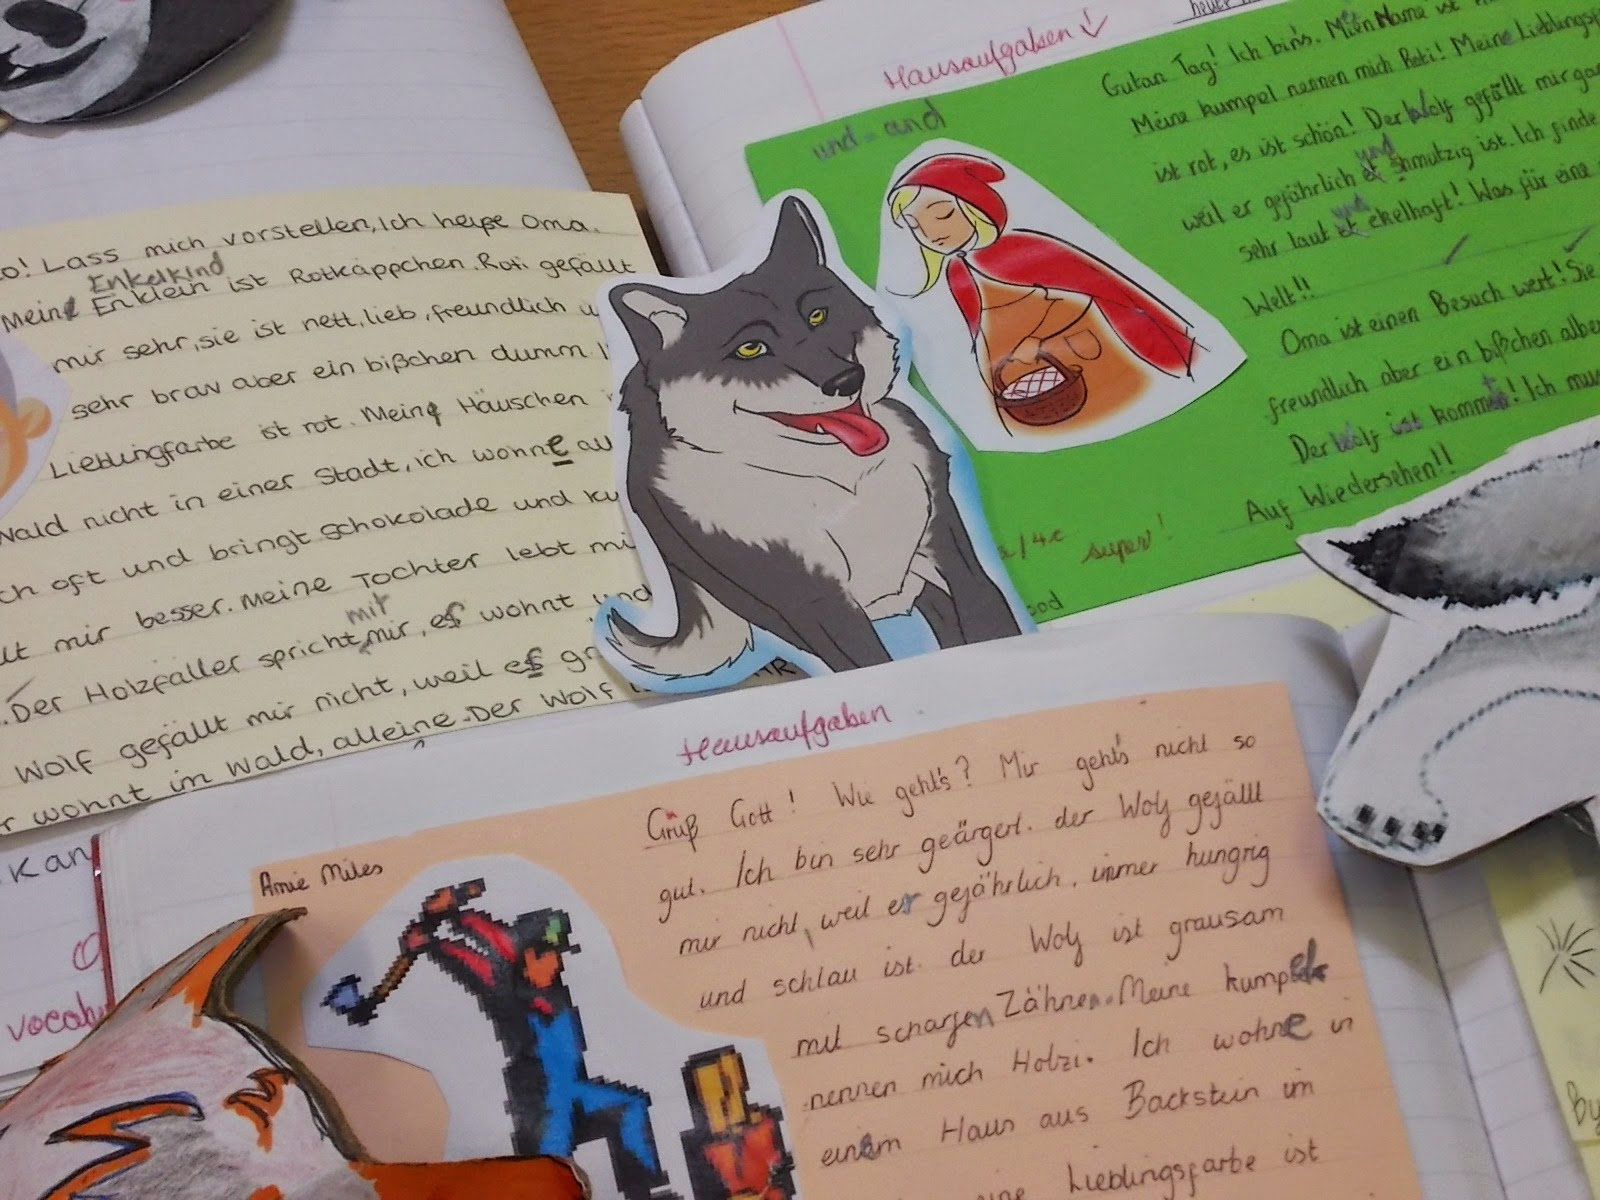 Lass mich vorstellen, Ich heiße Oma.
Enkelkind
Meine Enklein ist Rotkäppchen. Roti gefällt
mir sehr, sie ist nett, lieb, freundlich
sehr brav aber ein bißchen dumm.
Lieblingfarbe ist rot. Meine Häuschen
Wald nicht in einer Stadt, ich wohne
oft und bringt schokolade und
mir besser. Meine Tochter lebt
mit
Der Holzfäller spricht mir, es wohnt und
Wolf gefällt mir nicht, weil es
wohnt im Wald, alleine. Der Wolf
Kan
Hausaufgaben
und = and
Gutan Tag! Ich bin's. Mein Name ist
Meine Kumpel nennen mich Roti! Meine
ist rot, es ist schön! Der Wolf gefällt mir
und
weil er gefährlich et shmutzig ist. Ich finde
und
sehr laut et ekelhaft! Was für eine
Welt!!
Oma ist einen Besuch wert! Sie
freundlich aber ein bißchen
Der Wolf ist kommt! Ich
Auf Wiedersehen!!
super!
Hausaufgaben
Amie Miles
Grüß Gott! Wie geht's? Mir geht's nicht so
gut. Ich bin sehr geärgert. der Wolf gefällt
mir nicht, weil er gefährlich, immer hungrig
und schlau ist. der Wolf ist grausam
mit scharfen Zähnen. Meine Kumpel
nennen mich Holzi. Ich wohne in
einem Haus aus Backstein im
Lieblingsfarbe ist